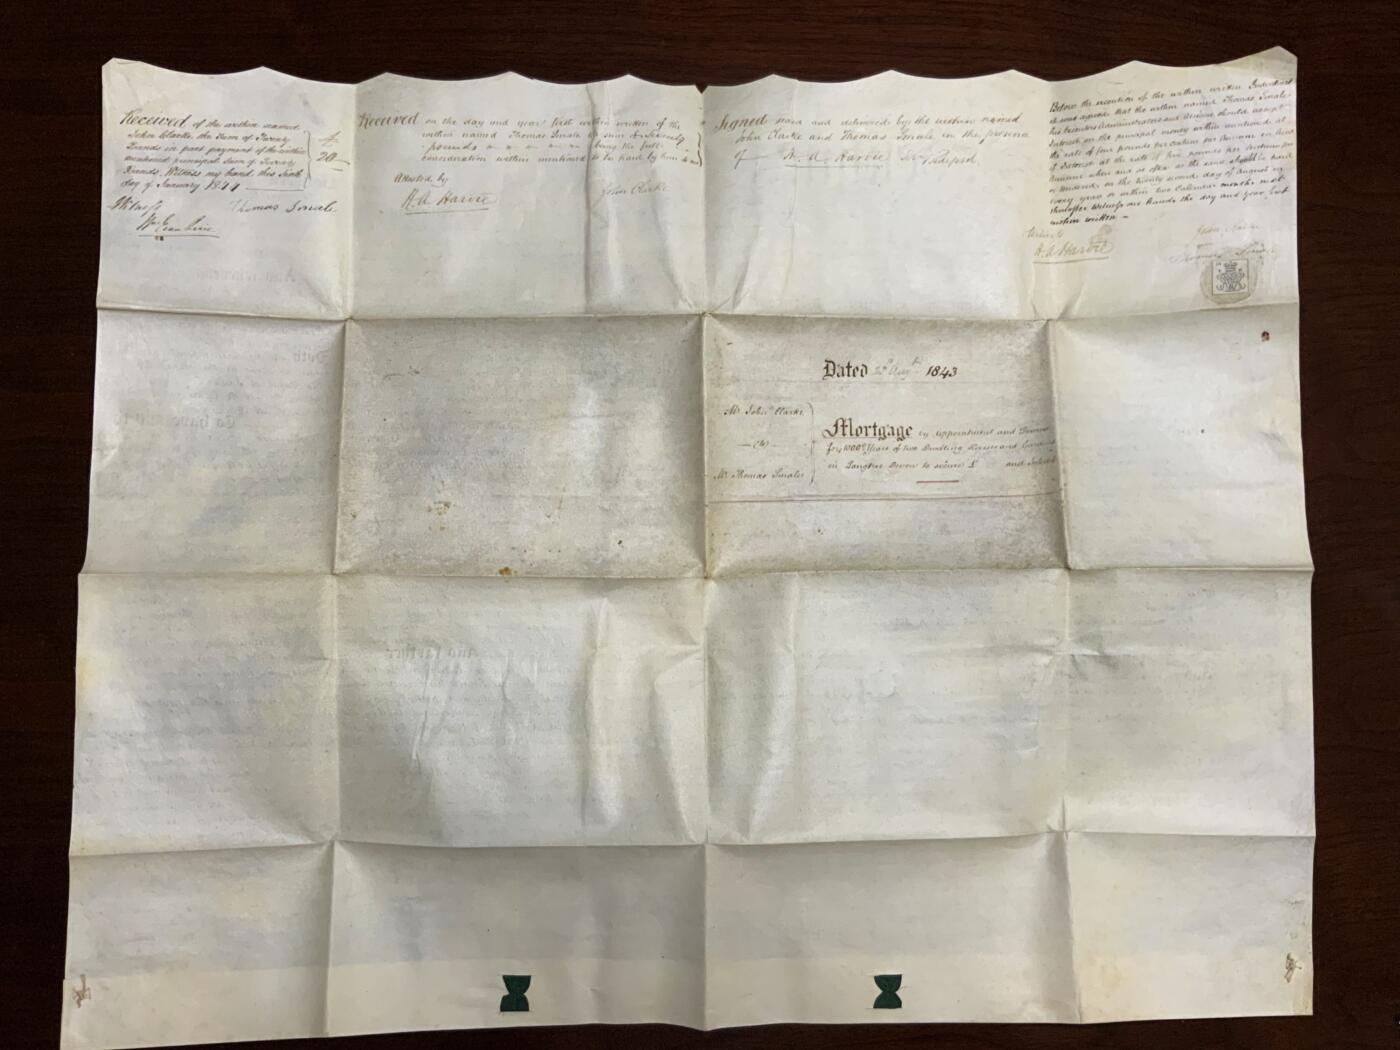 Received of the within named
John Clarke the Sum of Twenty
Pounds in part payment of the within
mentioned principal Sum of Seventy
Pounds. Witness my hand this Sixth
day of January 18
£
20
Witness
Thomas Smale
Received on the day and year first within written of the
within named Thomas Smale the sum of Seventy
pounds being the full
consideration within mentioned to be paid by him to me
Attested by
H. A. Harvie
John Clarke
Signed and delivered by the within named
John Clarke and Thomas Smale in the presence
of H. A. Harvie Bideford.
Before the execution of the within written Indenture
it was agreed that the within named Thomas Smale
his Executors Administrators and Assigns should accept
Interest on the principal money within mentioned at
the rate of four pounds per centum per Annum in lieu
of Interest at the rate of five pounds per centum per
Annum when and as often as the same should be paid
or tendered on the twenty second day of August in
every year or within two Calendar months next
thereafter Witness our hands the day and year first
within written
Witness
H. A. Harvie
John Clarke
Thomas Smale
Dated 22nd Augt 1843
Mr. John Clarke
to
Mr. Thomas Smale
Mortgage by Appointment and Demise
for 1000 Years of two Dwelling Houses and Gardens
in Langtree Devon to secure £ and Interest